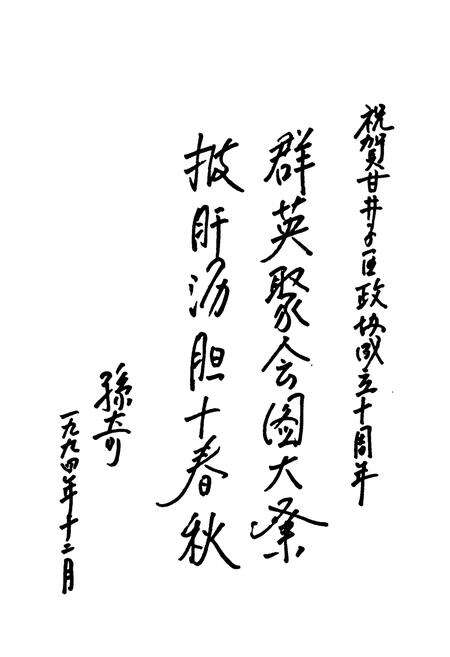 祝賀甘井子区政协成立十周年
群英聚会图大业
披肝沥胆十春秋
孫奇
一九九四年十二月